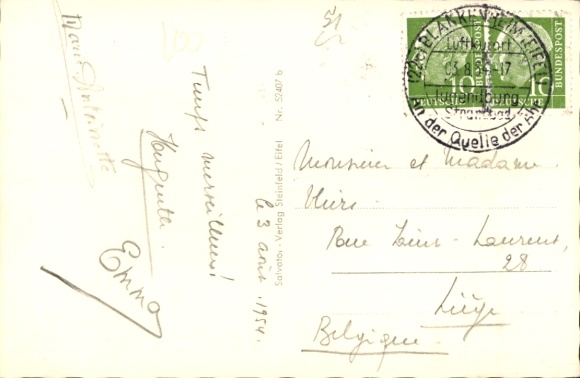 Marie Antoinette
Temps merveilleux!
Huguette
Emma
le 3 août 1954.
Salvator-Verlag Steinfeld/Eifel Nr. 5240 b
51
(22c) BLANKENHEIM (EIFEL)
Luftkurort
03.8.54-17
Jugendburg
Strandbad
An der Quelle der Ahr
10 10
DEUTSCHE BUNDESPOST
Monsieur et Madame
Rue Saint-Laurent,
28
Liège
Belgique